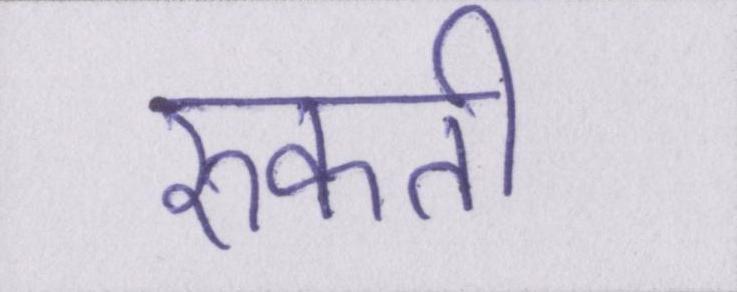 रुकती